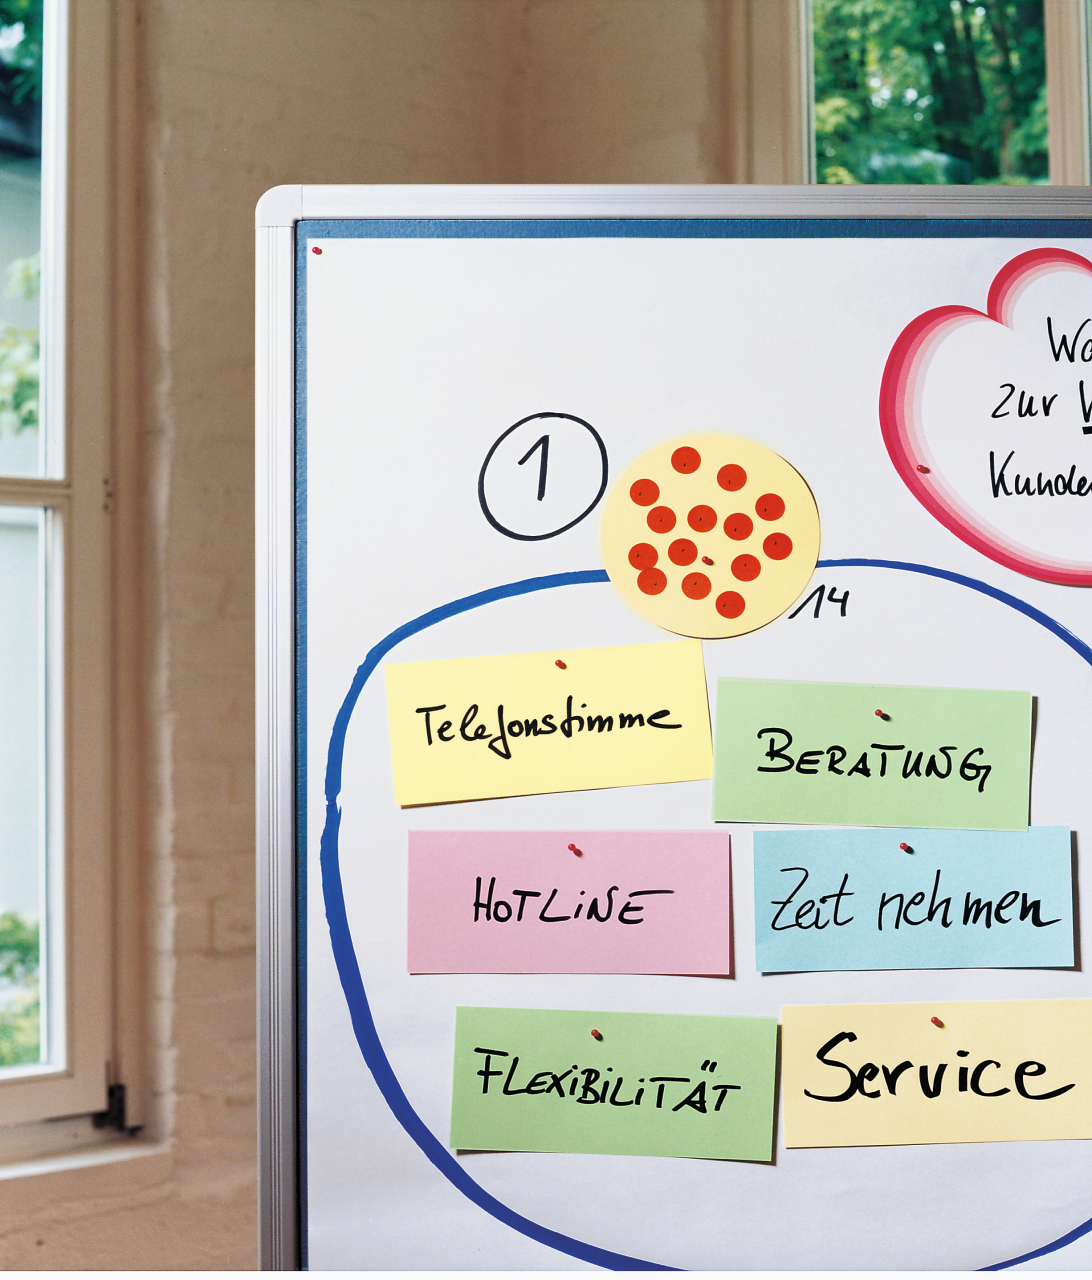 zur
1
14
Telefonstimme
BERATUNG
HOTLiNE
Zeit nehmen
FLEXiBiLiTÄT
Service